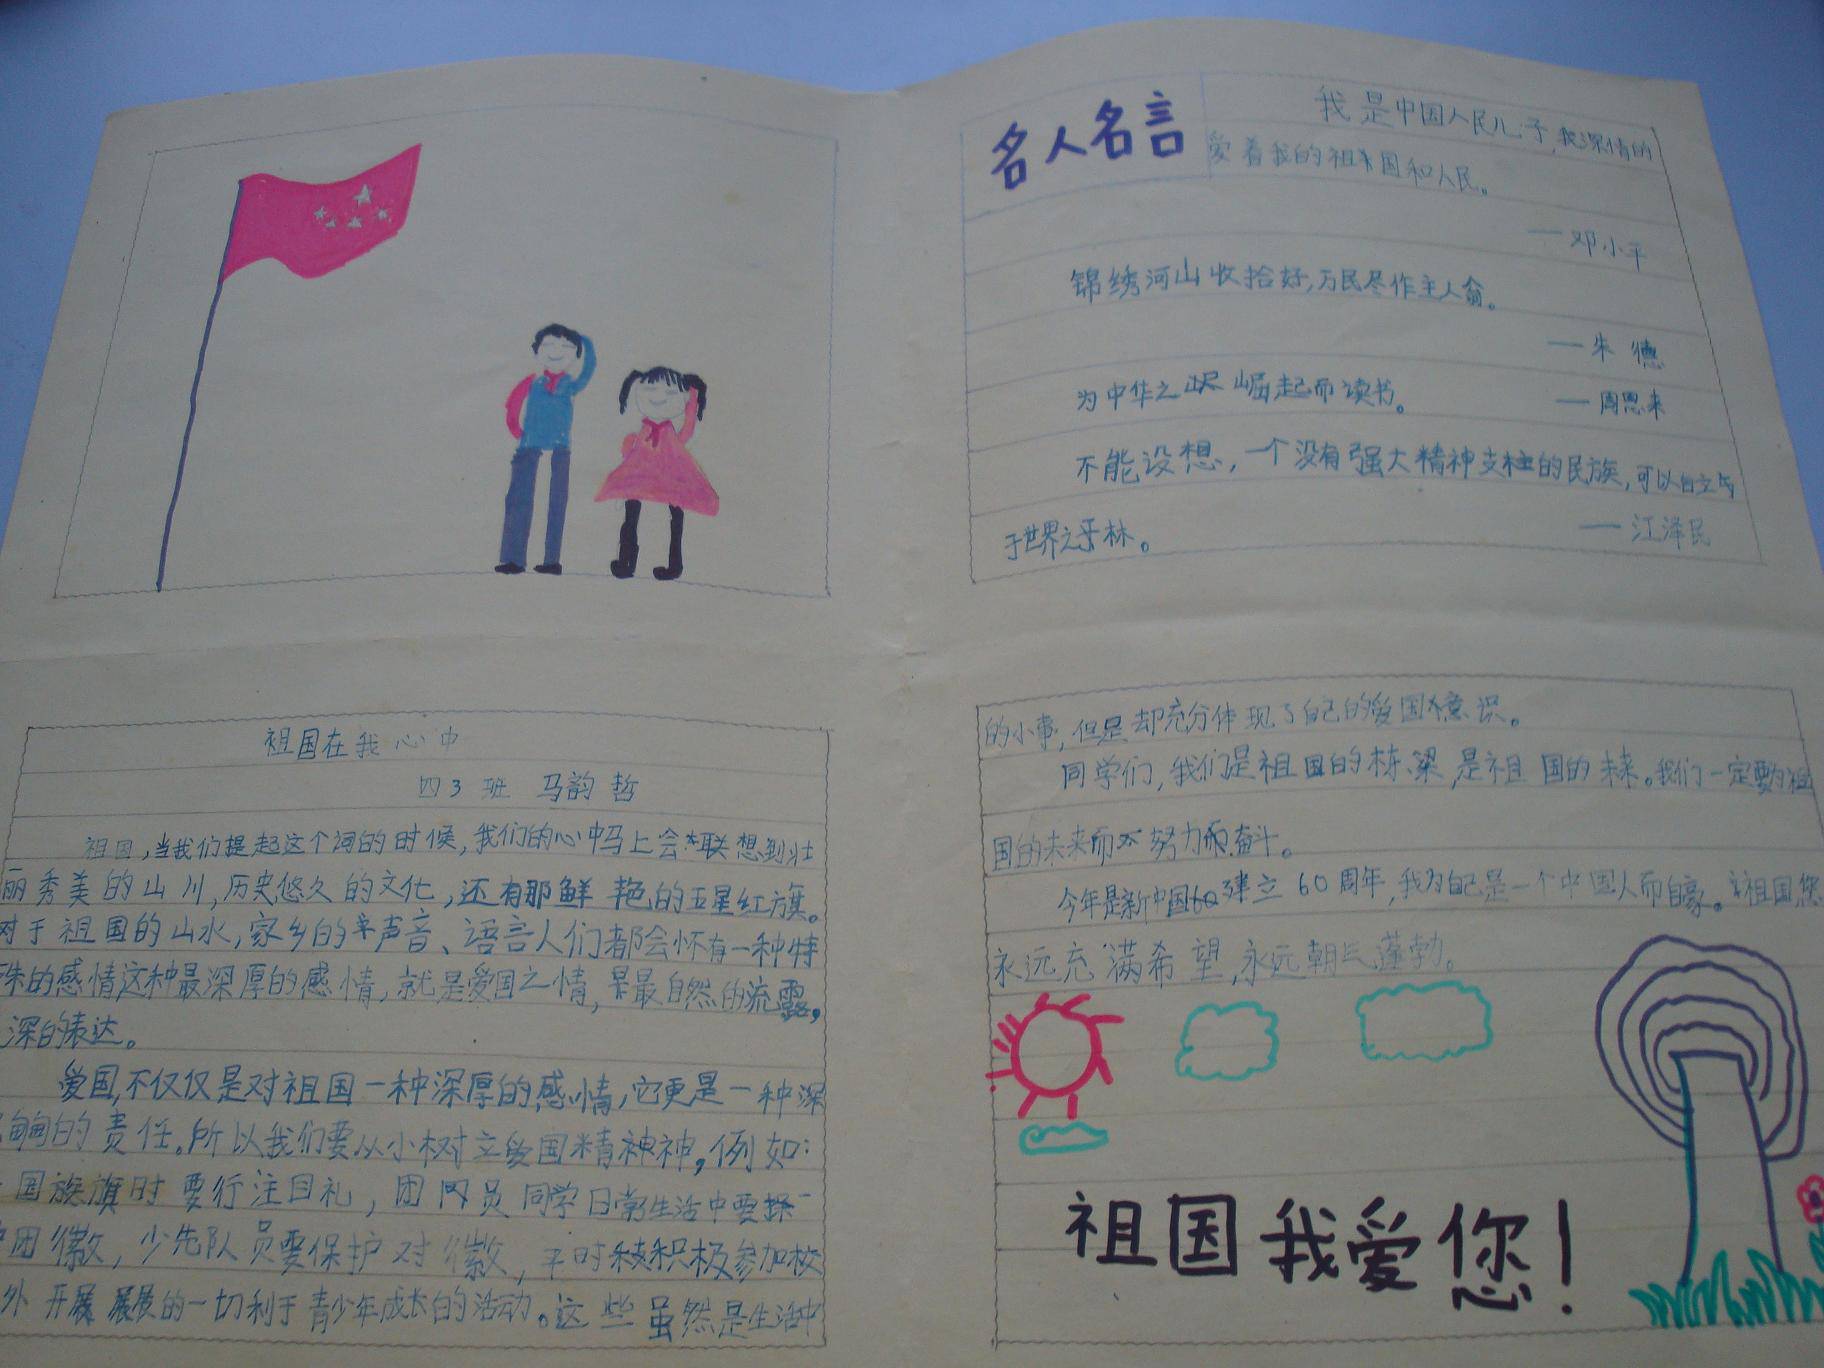 名人名言
我是中国人民儿子,我深情的
爱着我的祖国和人民。
—邓小平
锦绣河山收拾好,万民尽作主人翁。
—朱德
为中华之崛起而读书。 —周恩来
不能设想,一个没有强大精神支柱的民族,可以自立
于世界之林。 —江泽民
祖国在我心中
四3班 马韵哲
祖国,当我们提起这个词的时候,我们的心中马上会联想到壮
丽秀美的山川,历史悠久的文化,还有那鲜艳的五星红旗。
对于祖国的山水,家乡的声音、语言人们都会怀有一种特
殊的感情这种最深厚的感情,就是爱国之情,是最自然的流露,
深的表达。
爱国,不仅仅是对祖国一种深厚的感情,它更是一种深
的责任。所以我们要从小树立爱国精神,例如:
国旗时要行注目礼,团员同学日常生活中要
团徽,少先队员要保护队徽,平时积极参加校
外开展的一切利于青少年成长的活动。这些虽然是生活中
的小事,但是却充分体现了自己的爱国意识。
同学们,我们是祖国的栋梁,是祖国的未来。我们一定要为祖
国的未来而努力而奋斗。
今年是新中国建立60周年,我为自己是一个中国人而自豪。祖国您
永远充满希望,永远朝气蓬勃。
祖国我爱您!